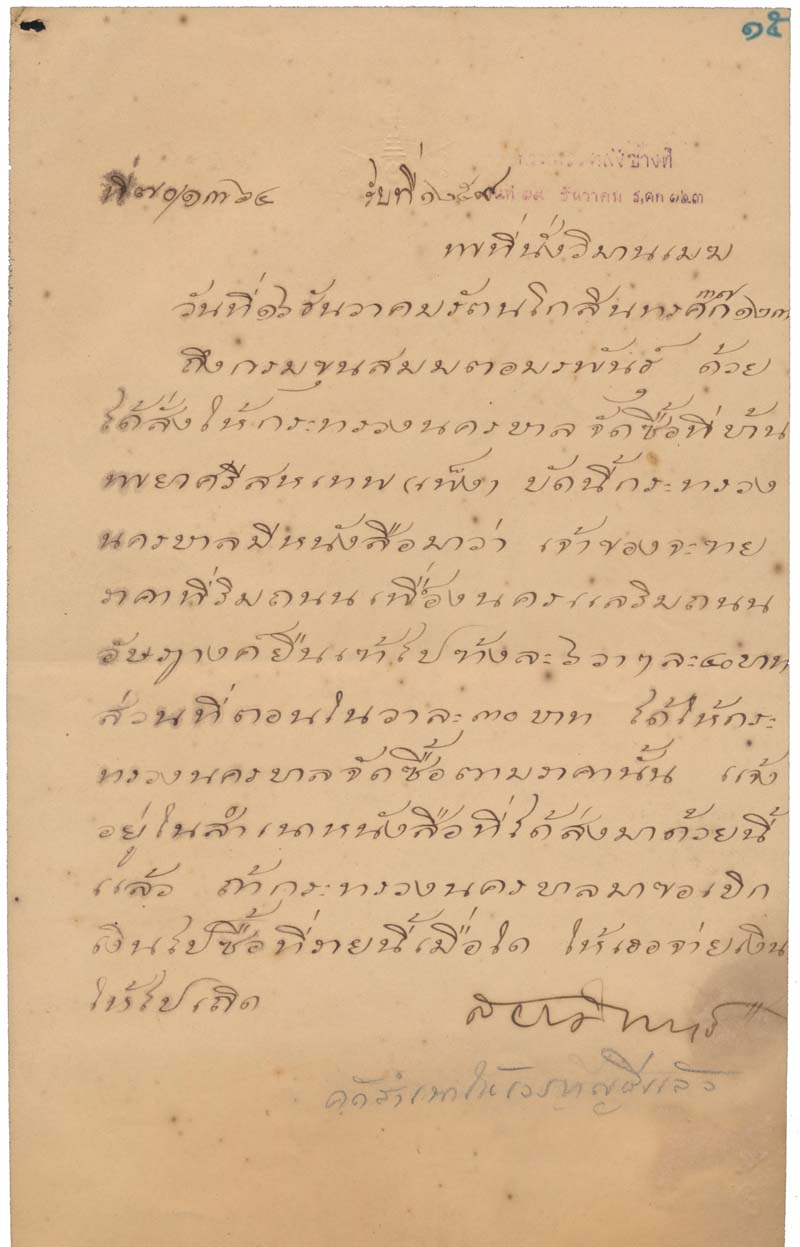 ๑๕
พระคลังข้างที่
ที่ ๗๐/๑๓๖๔ รับที่ ๑๒๕๙ วันที่ ๑๙ ธันวาคม ร,ศก ๑๒๓
พที่นั่งวิมานเมฆ
วันที่ ๑๖ ธันวาคม รัตนโกสินทรศก ๑๒๓
ถึงกรมขุนสมมตอมรพันธุ์ ด้วย
ได้สั่งให้กระทรวงนครบาลจัดซื้อที่บ้าน
พยาศรีสหเทพ (เพ็ง) บัดนี้กระทรวง
นครบาลมีหนังสือมาว่า เจ้าของจะขาย
ราคาที่ริมถนนเฟื่องนครแลริมถนน
อัษฎางค์ยืนเข้าไปข้างละ ๖ วา ๆ ละ ๔๐ บาท
ส่วนที่ตอนในวาละ ๓๐ บาท ได้ให้กระ
ทรวงนครบาลจัดซื้อตามราคานั้น แจ้ง
อยู่ในสำเนาหนังสือที่ได้ส่งมาด้วยนี้
แล้ว ถ้ากระทรวงนครบาลมาขอเบิก
เงินไปซื้อที่รายนี้เมื่อใด ให้เธอจ่ายเงิน
ให้ไปเถิด
สยามินทร์
คัดสำเนาให้เวรบาญชีแล้ว